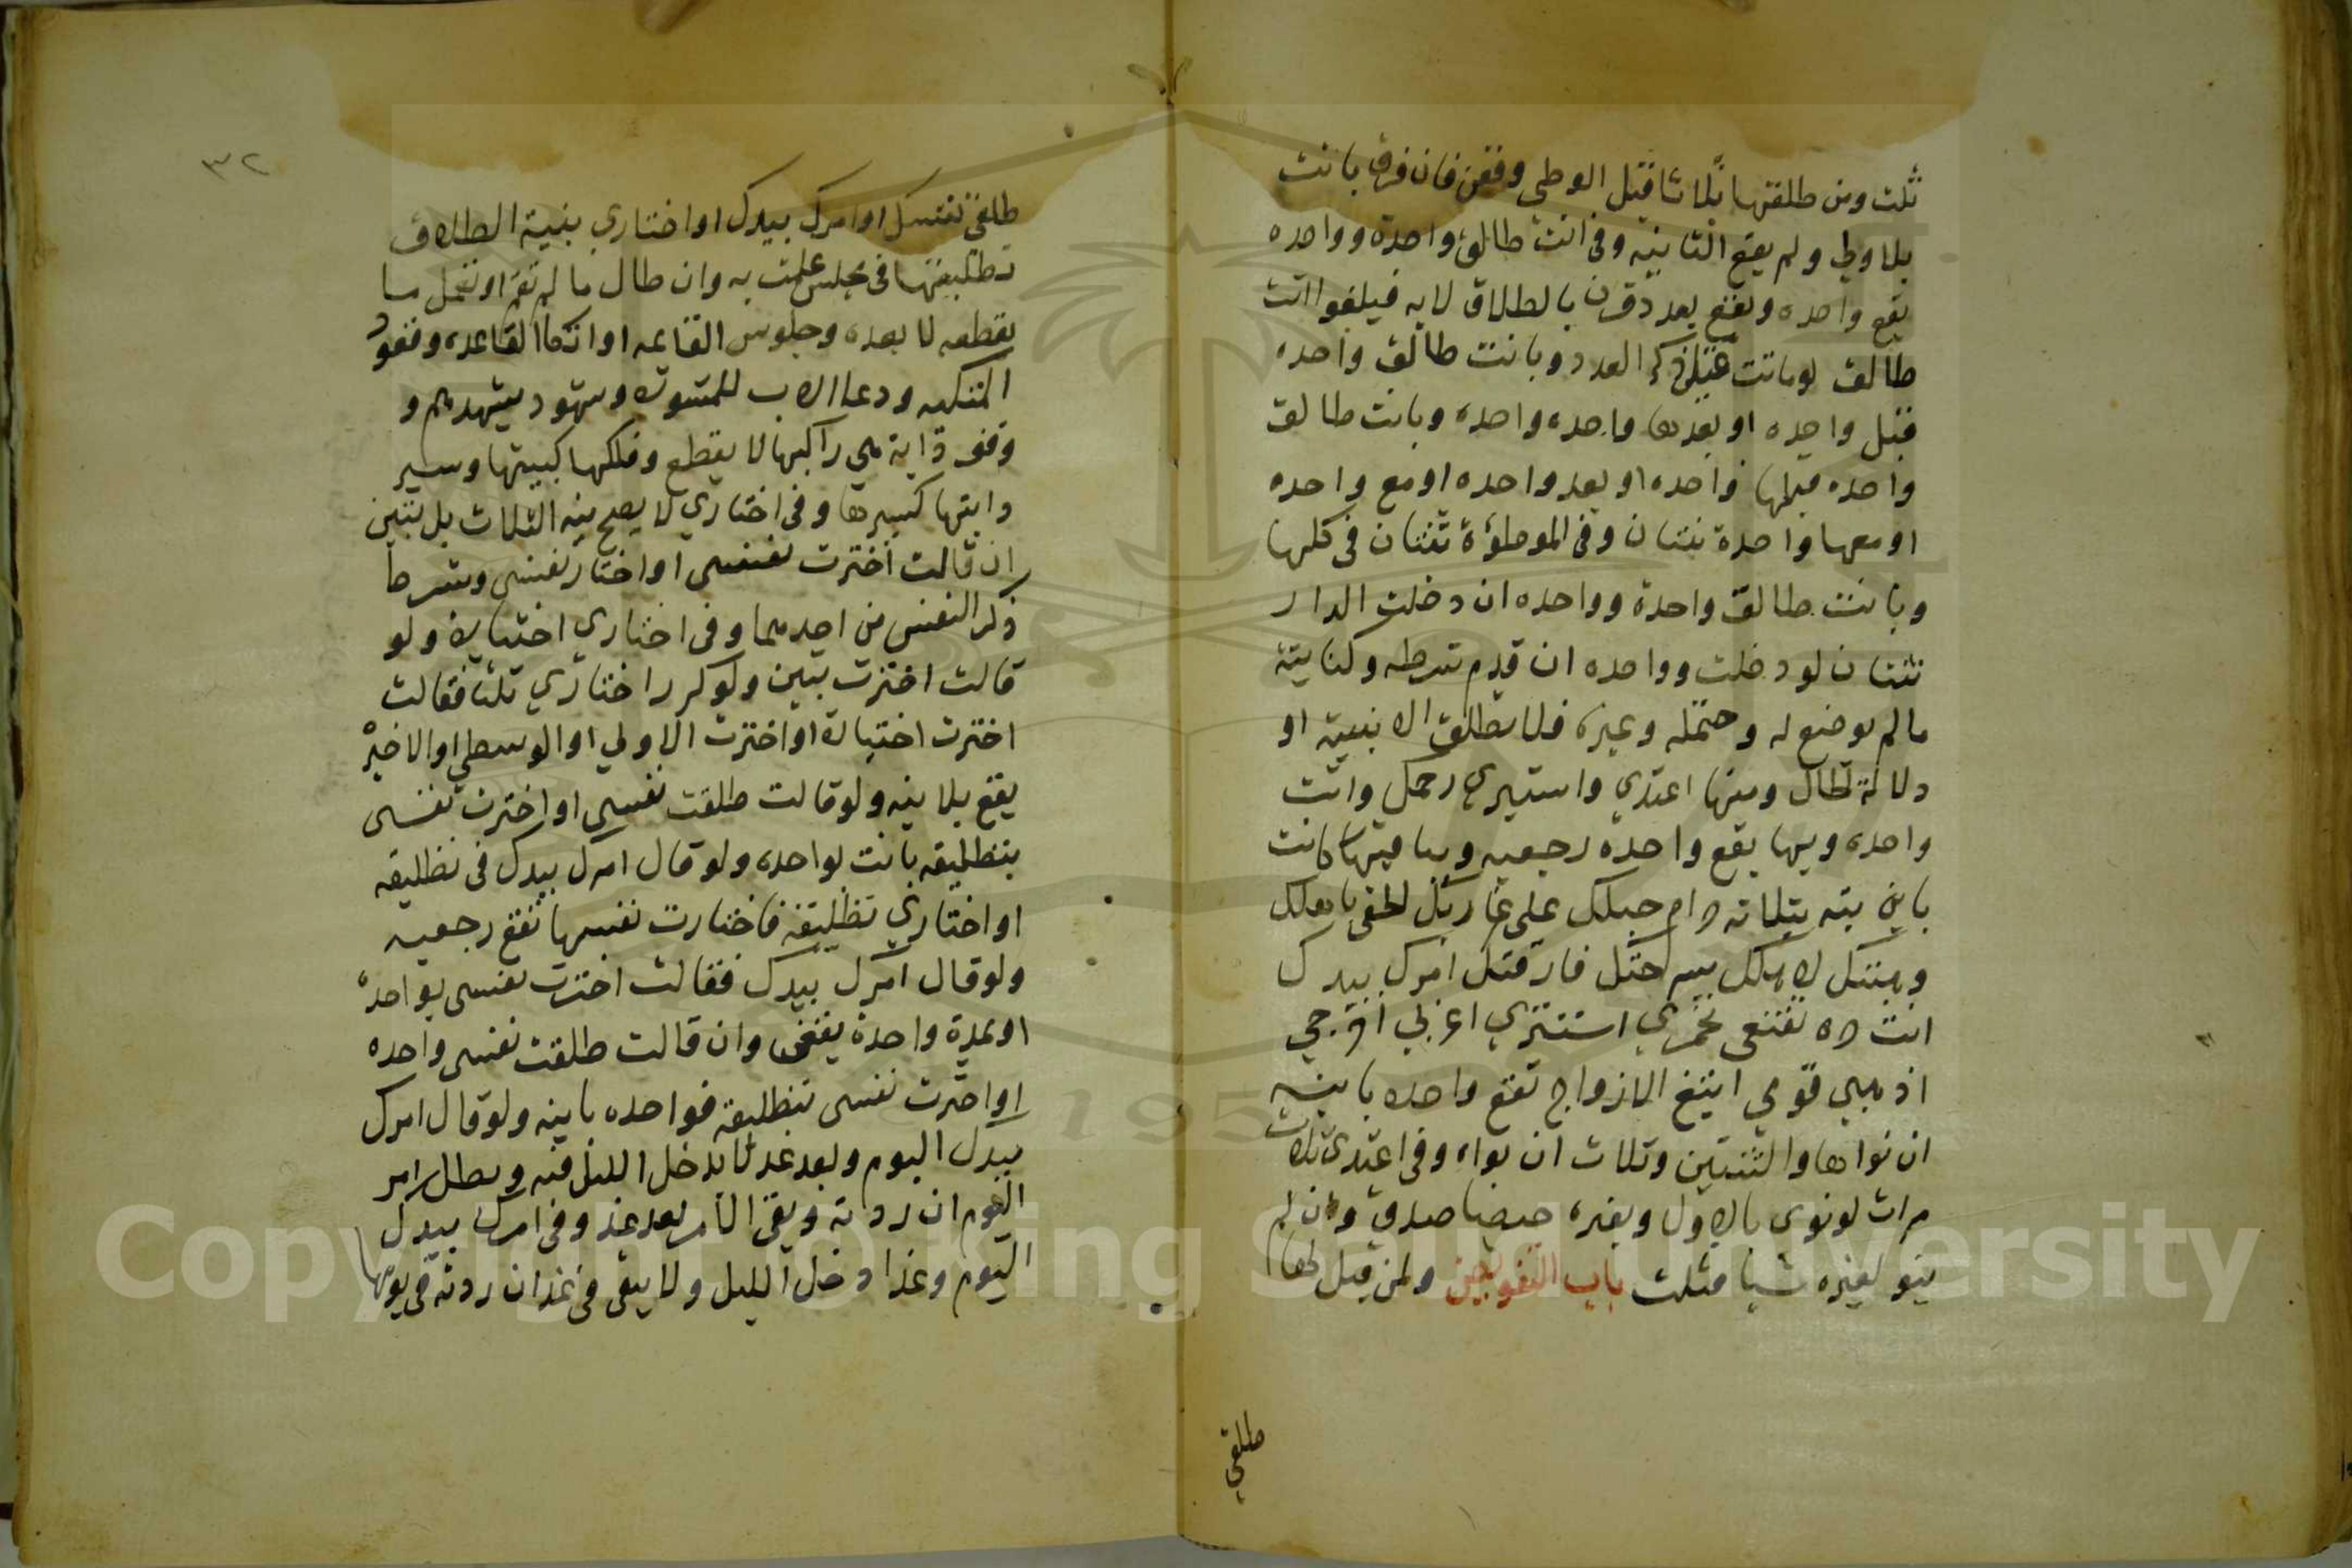 ثلث ومن طلقتها ثلاثا قبل الوطي وقعن فان فرق بانت
بلا وطي ولم يقع الثانيه وفي انت طالق واحدة وواحده
يقع واحده ويقع بعدد قرن بالطلاق لا به فيلغوا انت
طالق لو ماتت قبل ذكر العدد وبانت طالق واحده
قبل واحده او بعدها واحده واحده وبانت طالق
واحده قبلها واحده او بعد واحده او مع واحده
او معها واحدة ثنتان وفي الموطؤة ثنتان في كلها
وبانت طالق واحدة وواحده ان دخلت الدار
ثنتان لو دخلت وواحده ان قدم شرطه وكنايته
ما لم يوضع له وحتمله وغيره فلا تطلق الا بنيته او
دلالة لحال ومنها اعتدي واستبري رحمك وانت
واحده وبها يقع واحدة رجعيه وبباقيها كانت
باين بته بتلاته حرام حبلك على غاربك الحقي باهلك
وهبتك لاهلك سرحتك فارقتك امرك بيدك
انت حره تقنعي تخمري استتري اغربي اخرجي
اذهبي قومي ابتغ الازواج تقع واحده باينه
ان نواها والثنتين وثلاث ان نواه وفي اعتدي ثلاث
مرات لو نوى بالاول وبغيره حيضا صدق وان لم
ينو بغيره شيا فثلث باب التفويض ولمن قيل لها
طلقي
٣٢
طلقي نفسك او امرك بيدك او اختاري بنية الطلاق
تطليقها في مجلس علمت به وان طال ما لم تقم او تعمل ما
يقطعه لا بعده وجلوس القايمه او اتكا القاعده وقعود
المتكيه ودعا الاب للمشوره وشهود يشهدهم و
وقف دابة هي راكبها لا يقطع وفلكها كبيتها وسير
دابتها كسيرها وفي اختاري لا يصح نية الثلاث بل تبين
ان قالت اخترت نفسي او اختار نفسي وشرط
ذكر النفس من احدهما وفي اختاري اختيارة ولو
قالت اخترت تبين ولو كرر اختاري ثلثا فقالت
اخترت اختيارة او اخترت الاولي او الوسطي او الاخيرة
يقع بلا نيه ولو قالت طلقت نفسي او اخترت نفسي
بتطليقه بانت بواحده ولو قال امرك بيدك في تطليقه
او اختاري تطليقة فاختارت نفسها تقع رجعيه
ولو قال امرك بيدك فقالت اخترت نفسي بواحدة
او بمرة واحدة يقعن وان قالت طلقت نفسي واحده
او اخترت نفسي بتطليقة فواحده باينه ولو قال امرك
بيدك اليوم وبعد غد لا يدخل الليل فيه وبطل امر
اليوم ان ردته وبقي الامر بعد غد وفي امرك بيدك
اليوم وغدا دخل الليل ولا يبقى في غد ان ردته في يومها
Copyright © King Saud University
1957